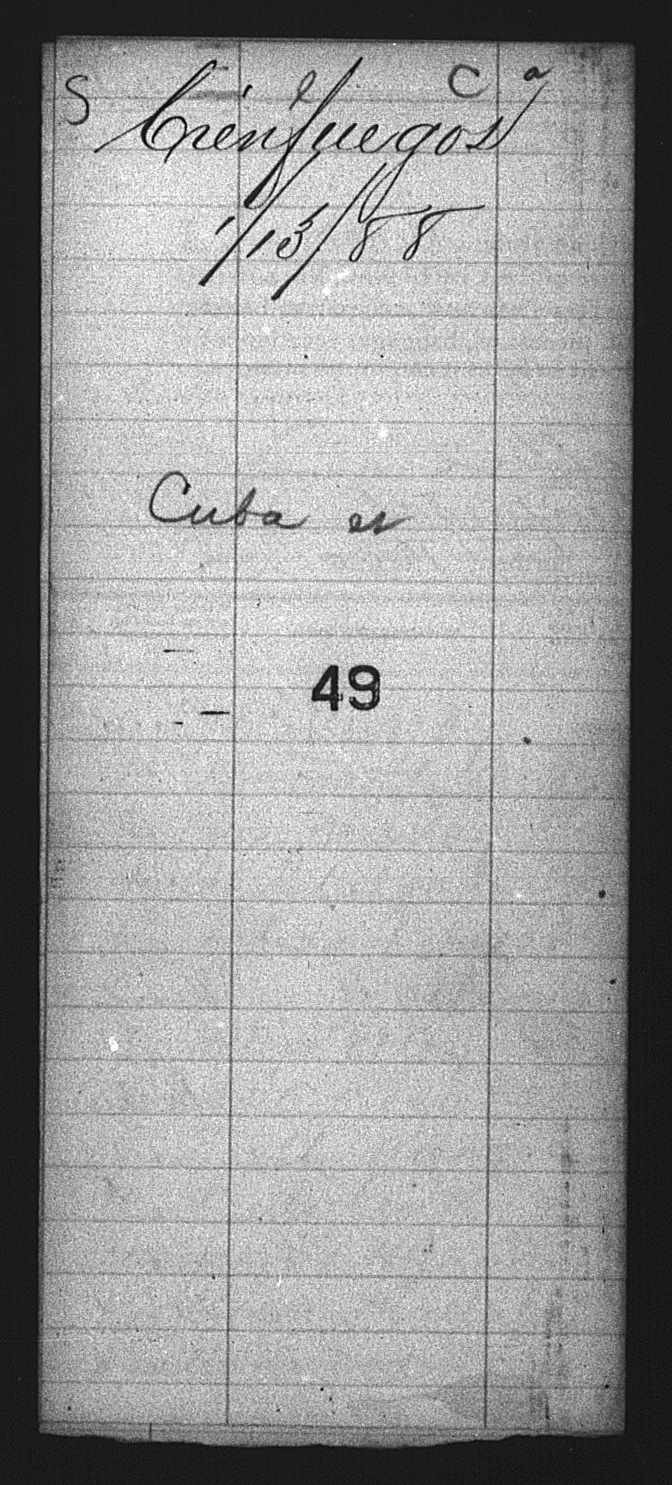 S C
Cienfuegos
1/13/88
Cuba
49